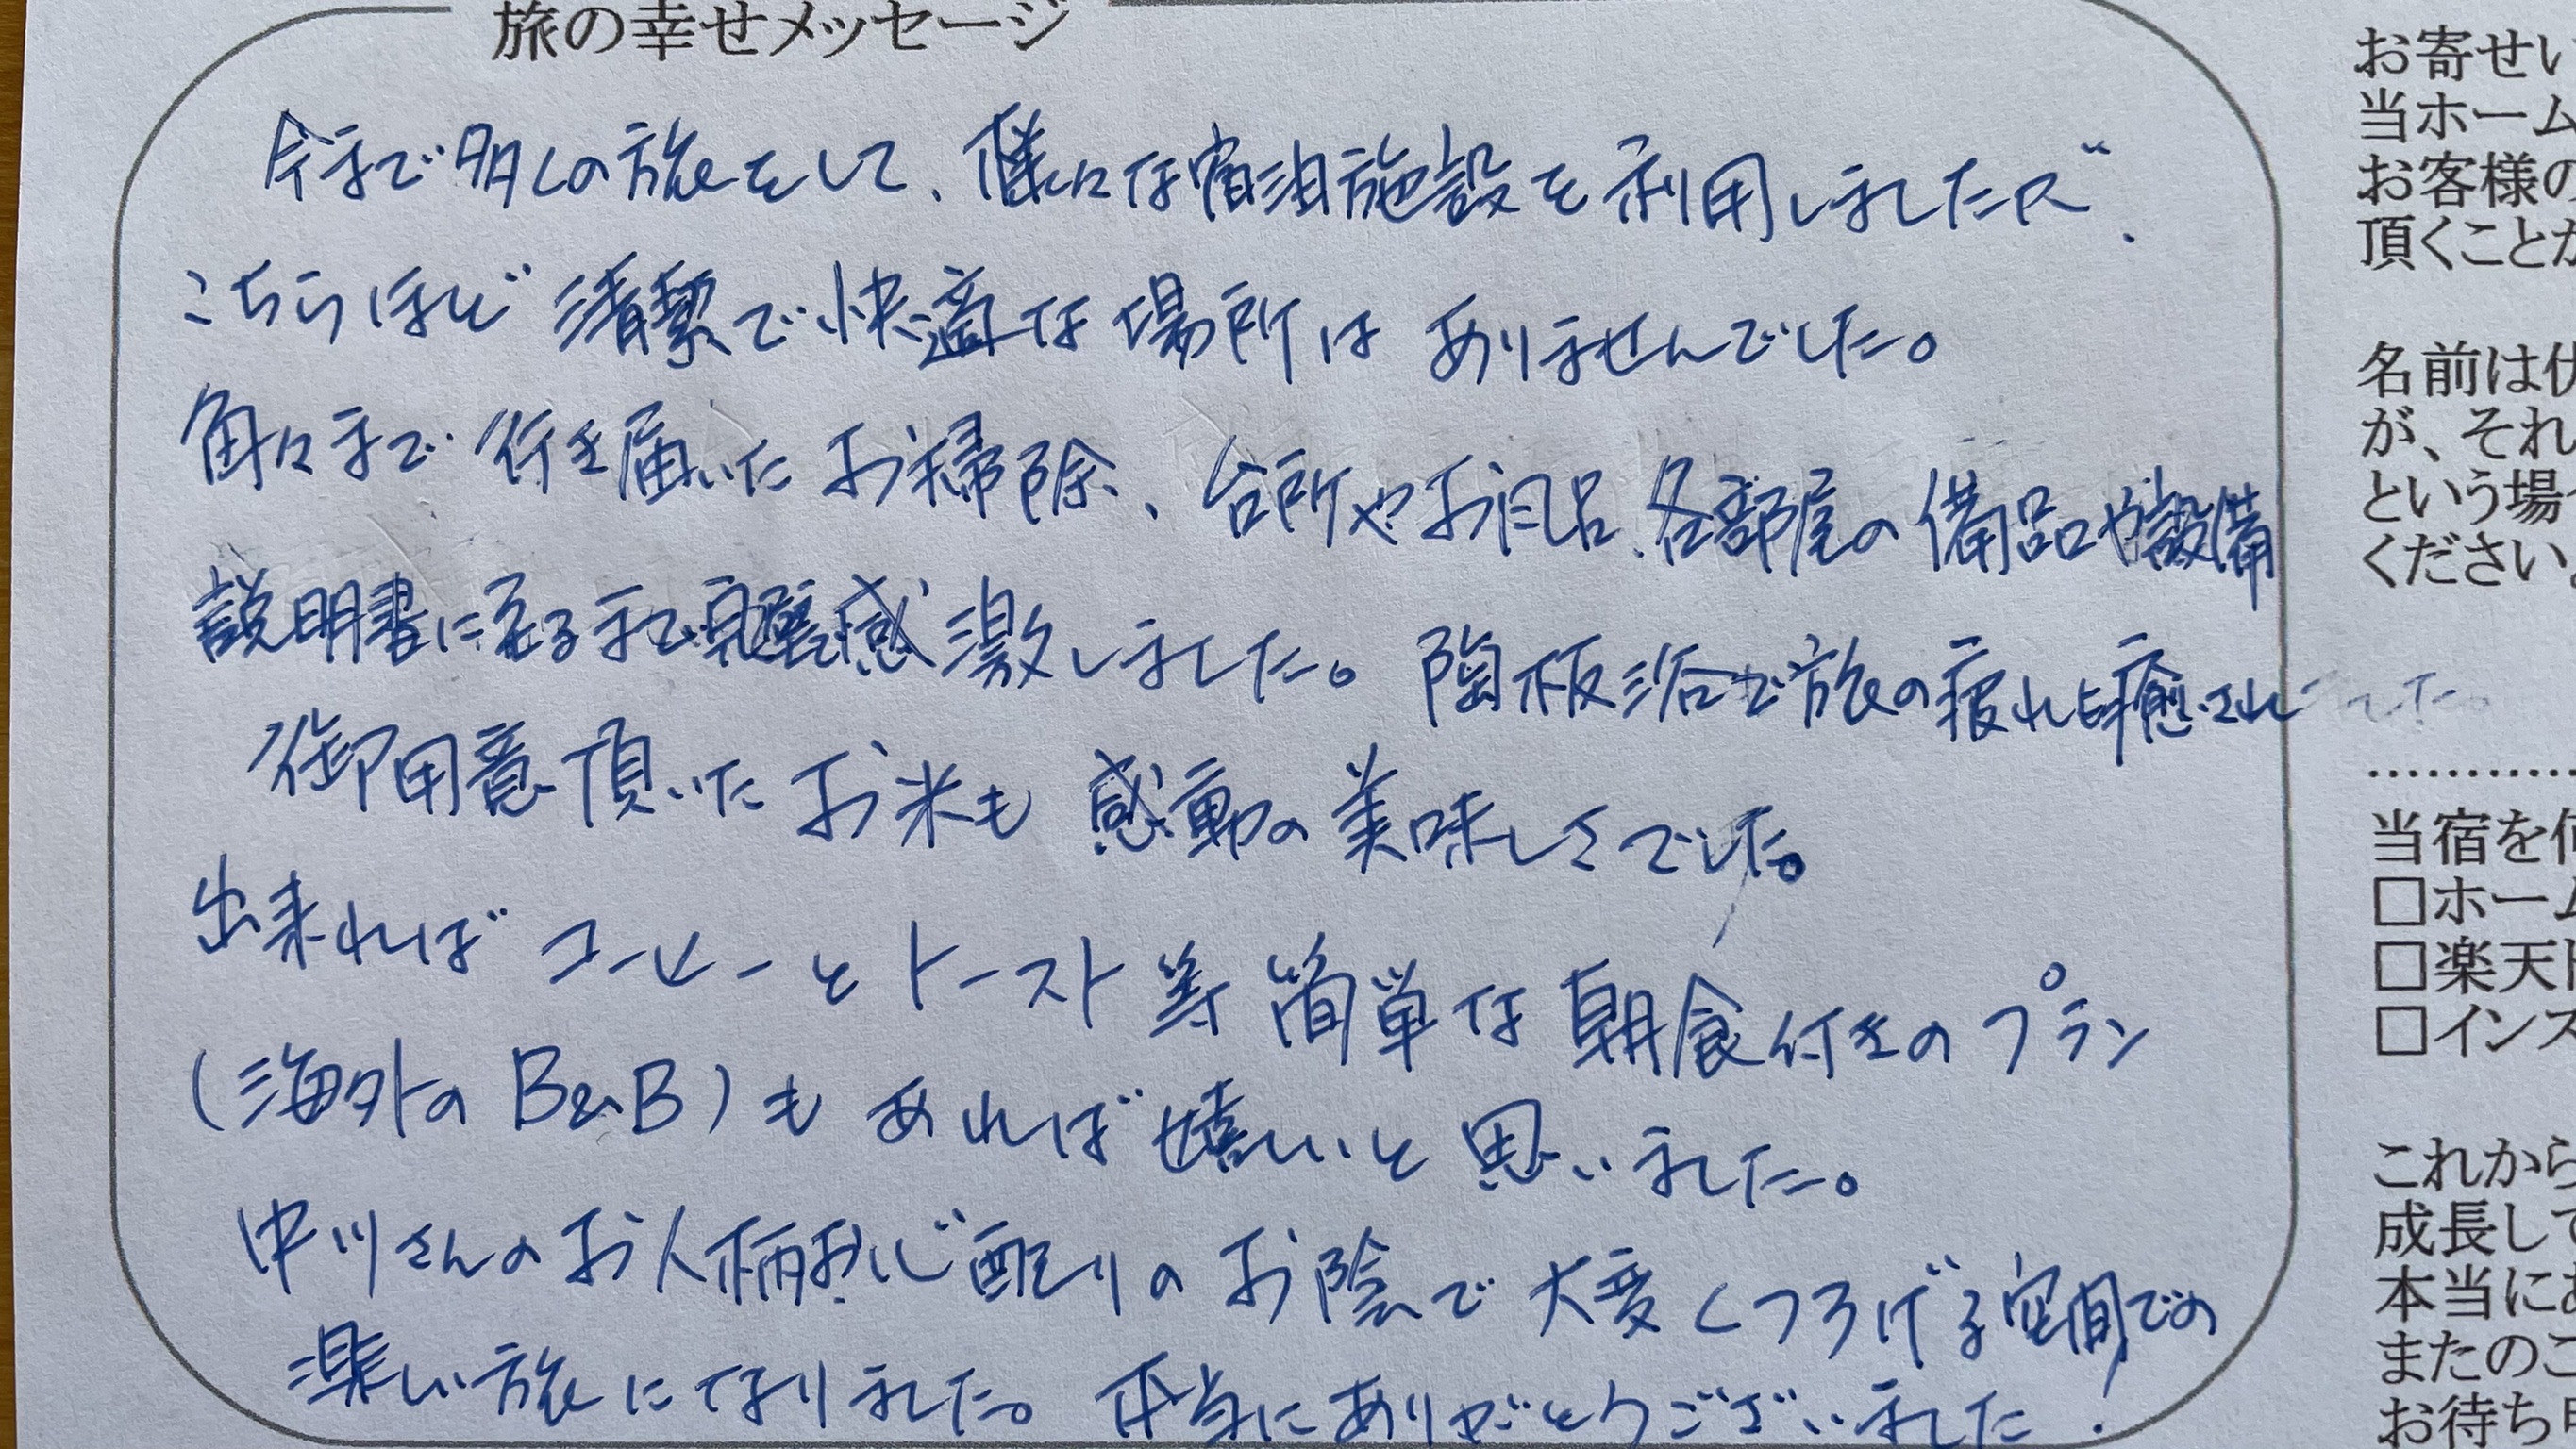 旅の幸せメッセージ
今まで多くの旅をして、様々な宿泊施設を利用しましたが、
こちらほど清潔で快適な場所はありませんでした。
角々まで行き届いたお掃除、台所やお風呂、各部屋の備品や設備
説明書に至るまで感激しました。陶板浴で旅の疲れも癒されました。
御用意頂いたお米も感動の美味しさでした。
出来ればコーヒーとトースト等簡単な朝食付きのプラン
(海外のB&B)もあれば嬉しいと思いました。
中川さんのお人柄お心配りのお陰で大変くつろげる空間での
楽しい旅になりました。本当にありがとうございました!
お寄せい
当ホーム
お客様の
頂くことが
名前は伏
が、それ
という場
ください。
当宿を何
□ホーム
□楽天ト
□インス
これから
成長して
本当にあ
またのご
お待ち申